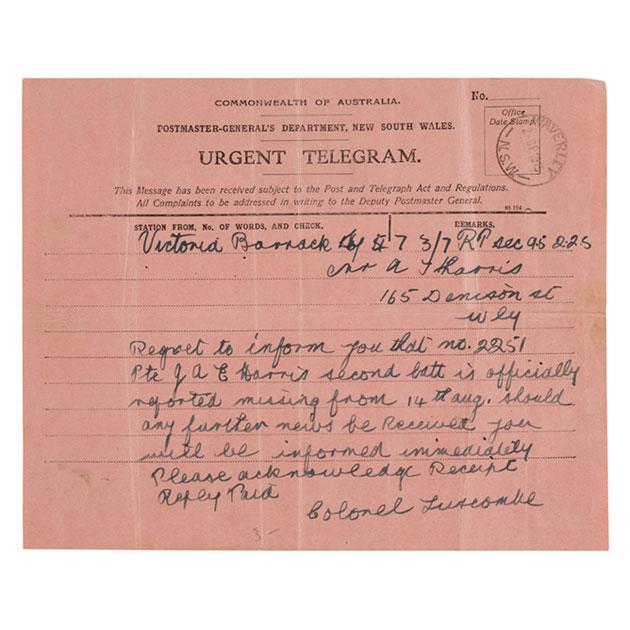 COMMONWEALTH OF AUSTRALIA.
No.
Office
Date Stamp.
WAVERLEY
N.S.W
POSTMASTER-GENERAL'S DEPARTMENT, NEW SOUTH WALES.
URGENT TELEGRAM.
This Message has been received subject to the Post and Telegraph Act and Regulations.
All Complaints to be addressed in writing to the Deputy Postmaster General.
STATION FROM, No. OF WORDS, AND CHECK. REMARKS.
Victoria Barrack 57 3/7 RP sec 95 2.25
Mr A J Harris
165 Denison st
Wly
Regret to inform you that no. 2251
Pte J A E Harris second batt is officially
reported missing from 14th aug. should
any further news be received you
will be informed immediately
Please acknowledge Receipt
Reply Paid
Colonel Luscombe
3-